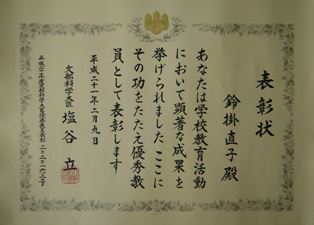 表彰状
鈴掛直子殿
あなたは学校教育活動
において顕著な成果を
挙げられました ここに
その功をたたえ優秀教
員として表彰します
平成二十一年二月九日
文部科学大臣 塩谷 立